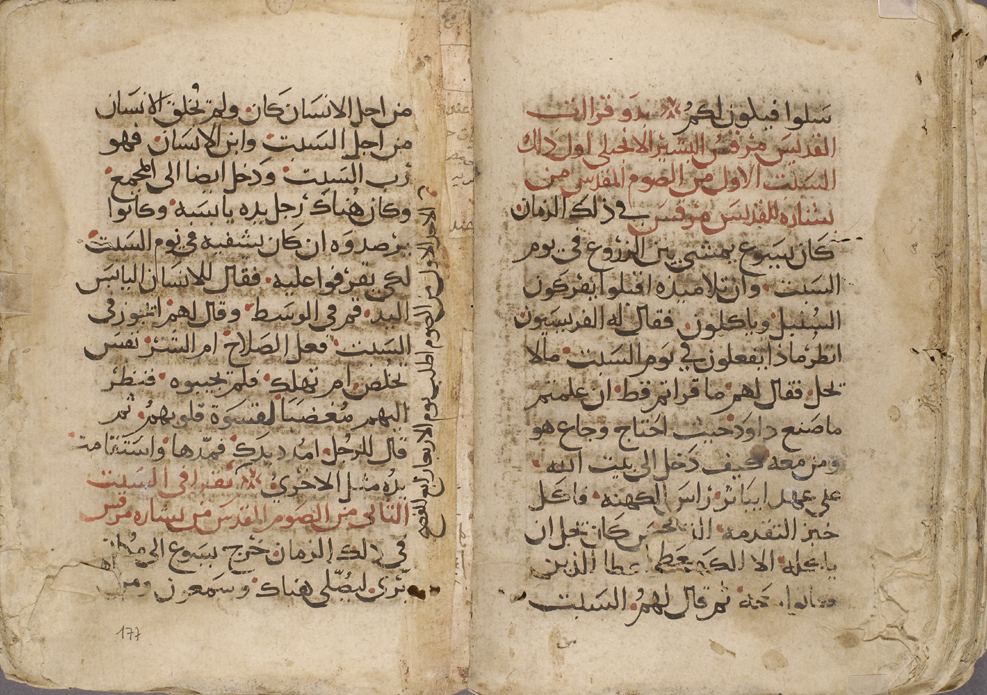 سلوا فيكون لكم بدو قراات
القديس مرقس البشير الانجيلي اول ذلك
السبت الاول من الصوم المقدس من
بشاره للقديس مرقس في ذلك الزمان
كان يسوع يمشي بين الزروع في يوم
السبت وان تلاميذه اقبلوا يفركون
السنبل وياكلون فقال له الفريسيون
انظر ماذا يفعلون في يوم السبت مالا
تحل فقال لهم ما قراتم قط ان علمتم
ماصنع داود حيث احتاج وجاع هو
ومن معه كيف دخل الى بيت الله
على عهد ابياثر راس الكهنه فاكل
خبز التقدمه الذي كان يحل ان
ياكله الا الكهنه عطا الذين
كانوا معه ثم قال لهم السبت
من اجل الانسان كان ولم تخلق الانسان
من اجل السبت وابن الانسان فهو
رب السبت ودخل ايضا الى المجمع
وكان هناك رجل يده يابسه وكانوا
يرصدوه ان كان يشفيه في يوم السبت
لكي يقرفوا عليه فقال للانسان اليابس
اليد قم في الوسط وقال لهم في
السبت فعل الصلاح ام الشر نفس
تخلص ام تهلك فلم يجيبوه فنظر
اليهم مغضبا لقسوة قلوبهم ثم
قال للرجل امدد يدك فمدها واستقامت
يده مثل الاخرى يقرا في السبت
الثاني من الصوم المقدس من بشاره مرقس
في ذلك الزمان خرج يسوع الى مكان
بري ليصلي هناك وسمعون ومن
الاحد الاول من الصوم اطلب يوم الاربعا رابع الفصح
177